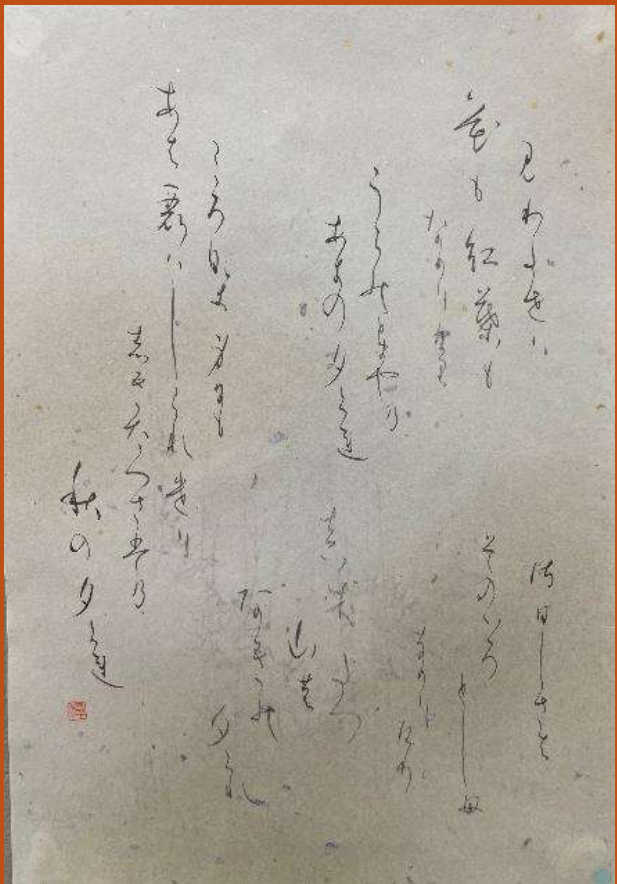 見わたせハ
花も紅葉も
なかりけり
うらのとまやの
あきの夕くれ
さひしさは
そのいろ
としも
なかりけり
まきたつ
山の
あきの
夕くれ
こころなき身にも
あはれハしられけり
志きたつさ者の
秋の夕くれ